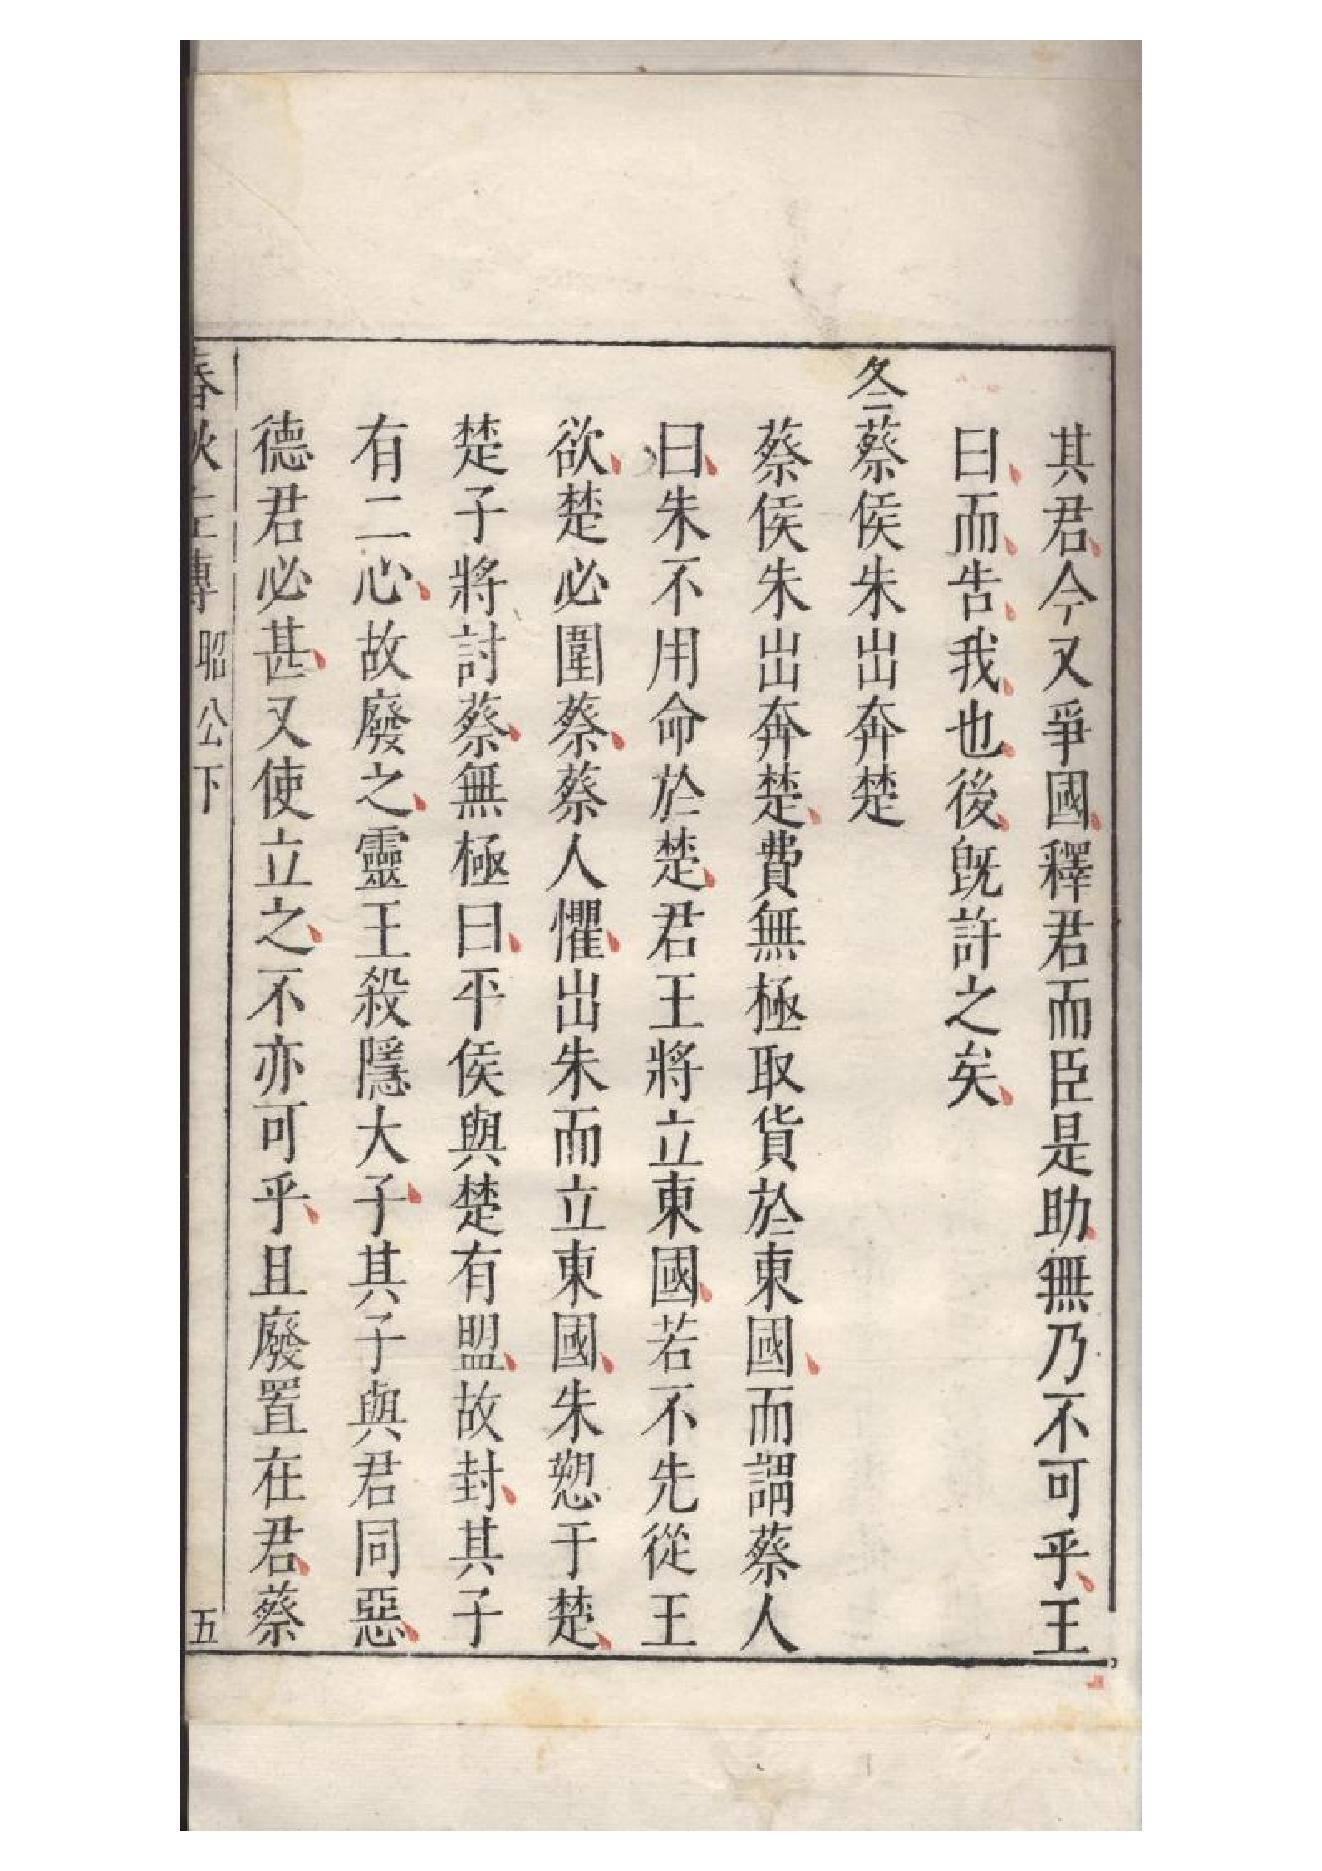 其君今又爭國釋君而臣是助無乃不可乎王
曰而告我也後旣許之矣
冬蔡侯朱出奔楚
蔡侯朱出奔楚費無極取貨於東國而謂蔡人
曰朱不用命於楚君王將立東國若不先從王
欲楚必圍蔡蔡人懼出朱而立東國朱愬于楚
楚子將討蔡無極曰平侯與楚有盟故封其子
有二心故廢之靈王殺隱大子其子與君同惡
德君必甚又使立之不亦可乎且廢置在君蔡
春秋左傳 昭公下 五